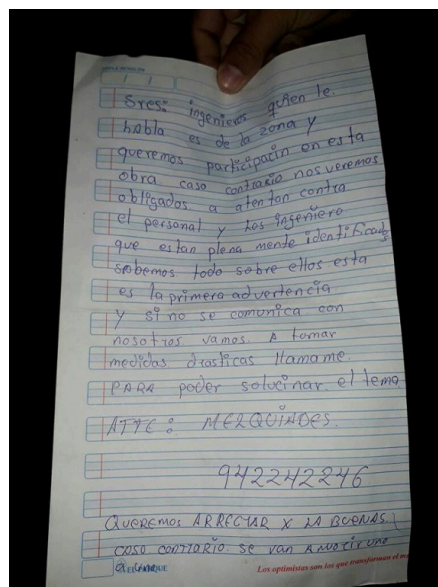 Sres: ingenieros quien le.
habla es de la zona y
queremos participación en esta
obra caso contrario nos veremos
obligados a atentan contra
el personal y los ingeniero
que estan plena mente identificados
sabemos todo sobre ellos esta
es la primera advertencia
Y si no se comunica con
nosotros vamos. A tomar
medidas drasticas llamame.
PARA poder solucinar el tema
ATTE: MELQUIADES.
942242246
QUEREMOS ARREGLAR X LA BUENAS
CASO CONTRARIO. se van A MORIR UNO
a uno
Los optimistas son los que transforman el